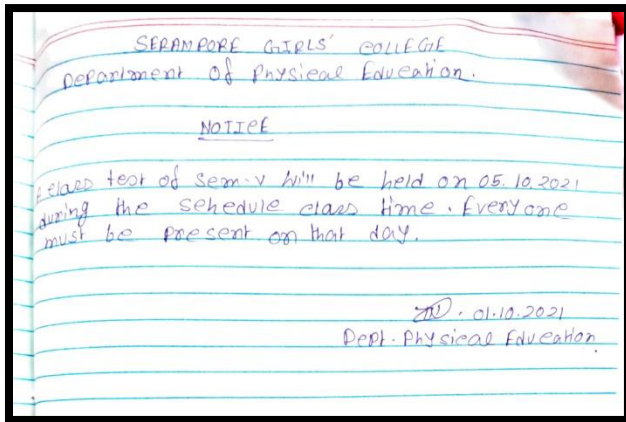 SERAMPORE GIRLS' COLLEGE
Department of Physical Education.
NOTICE
A class test of Sem-V will be held on 05.10.2021
during the schedule class time. Everyone
must be present on that day.
01.10.2021
Dept. Physical Education